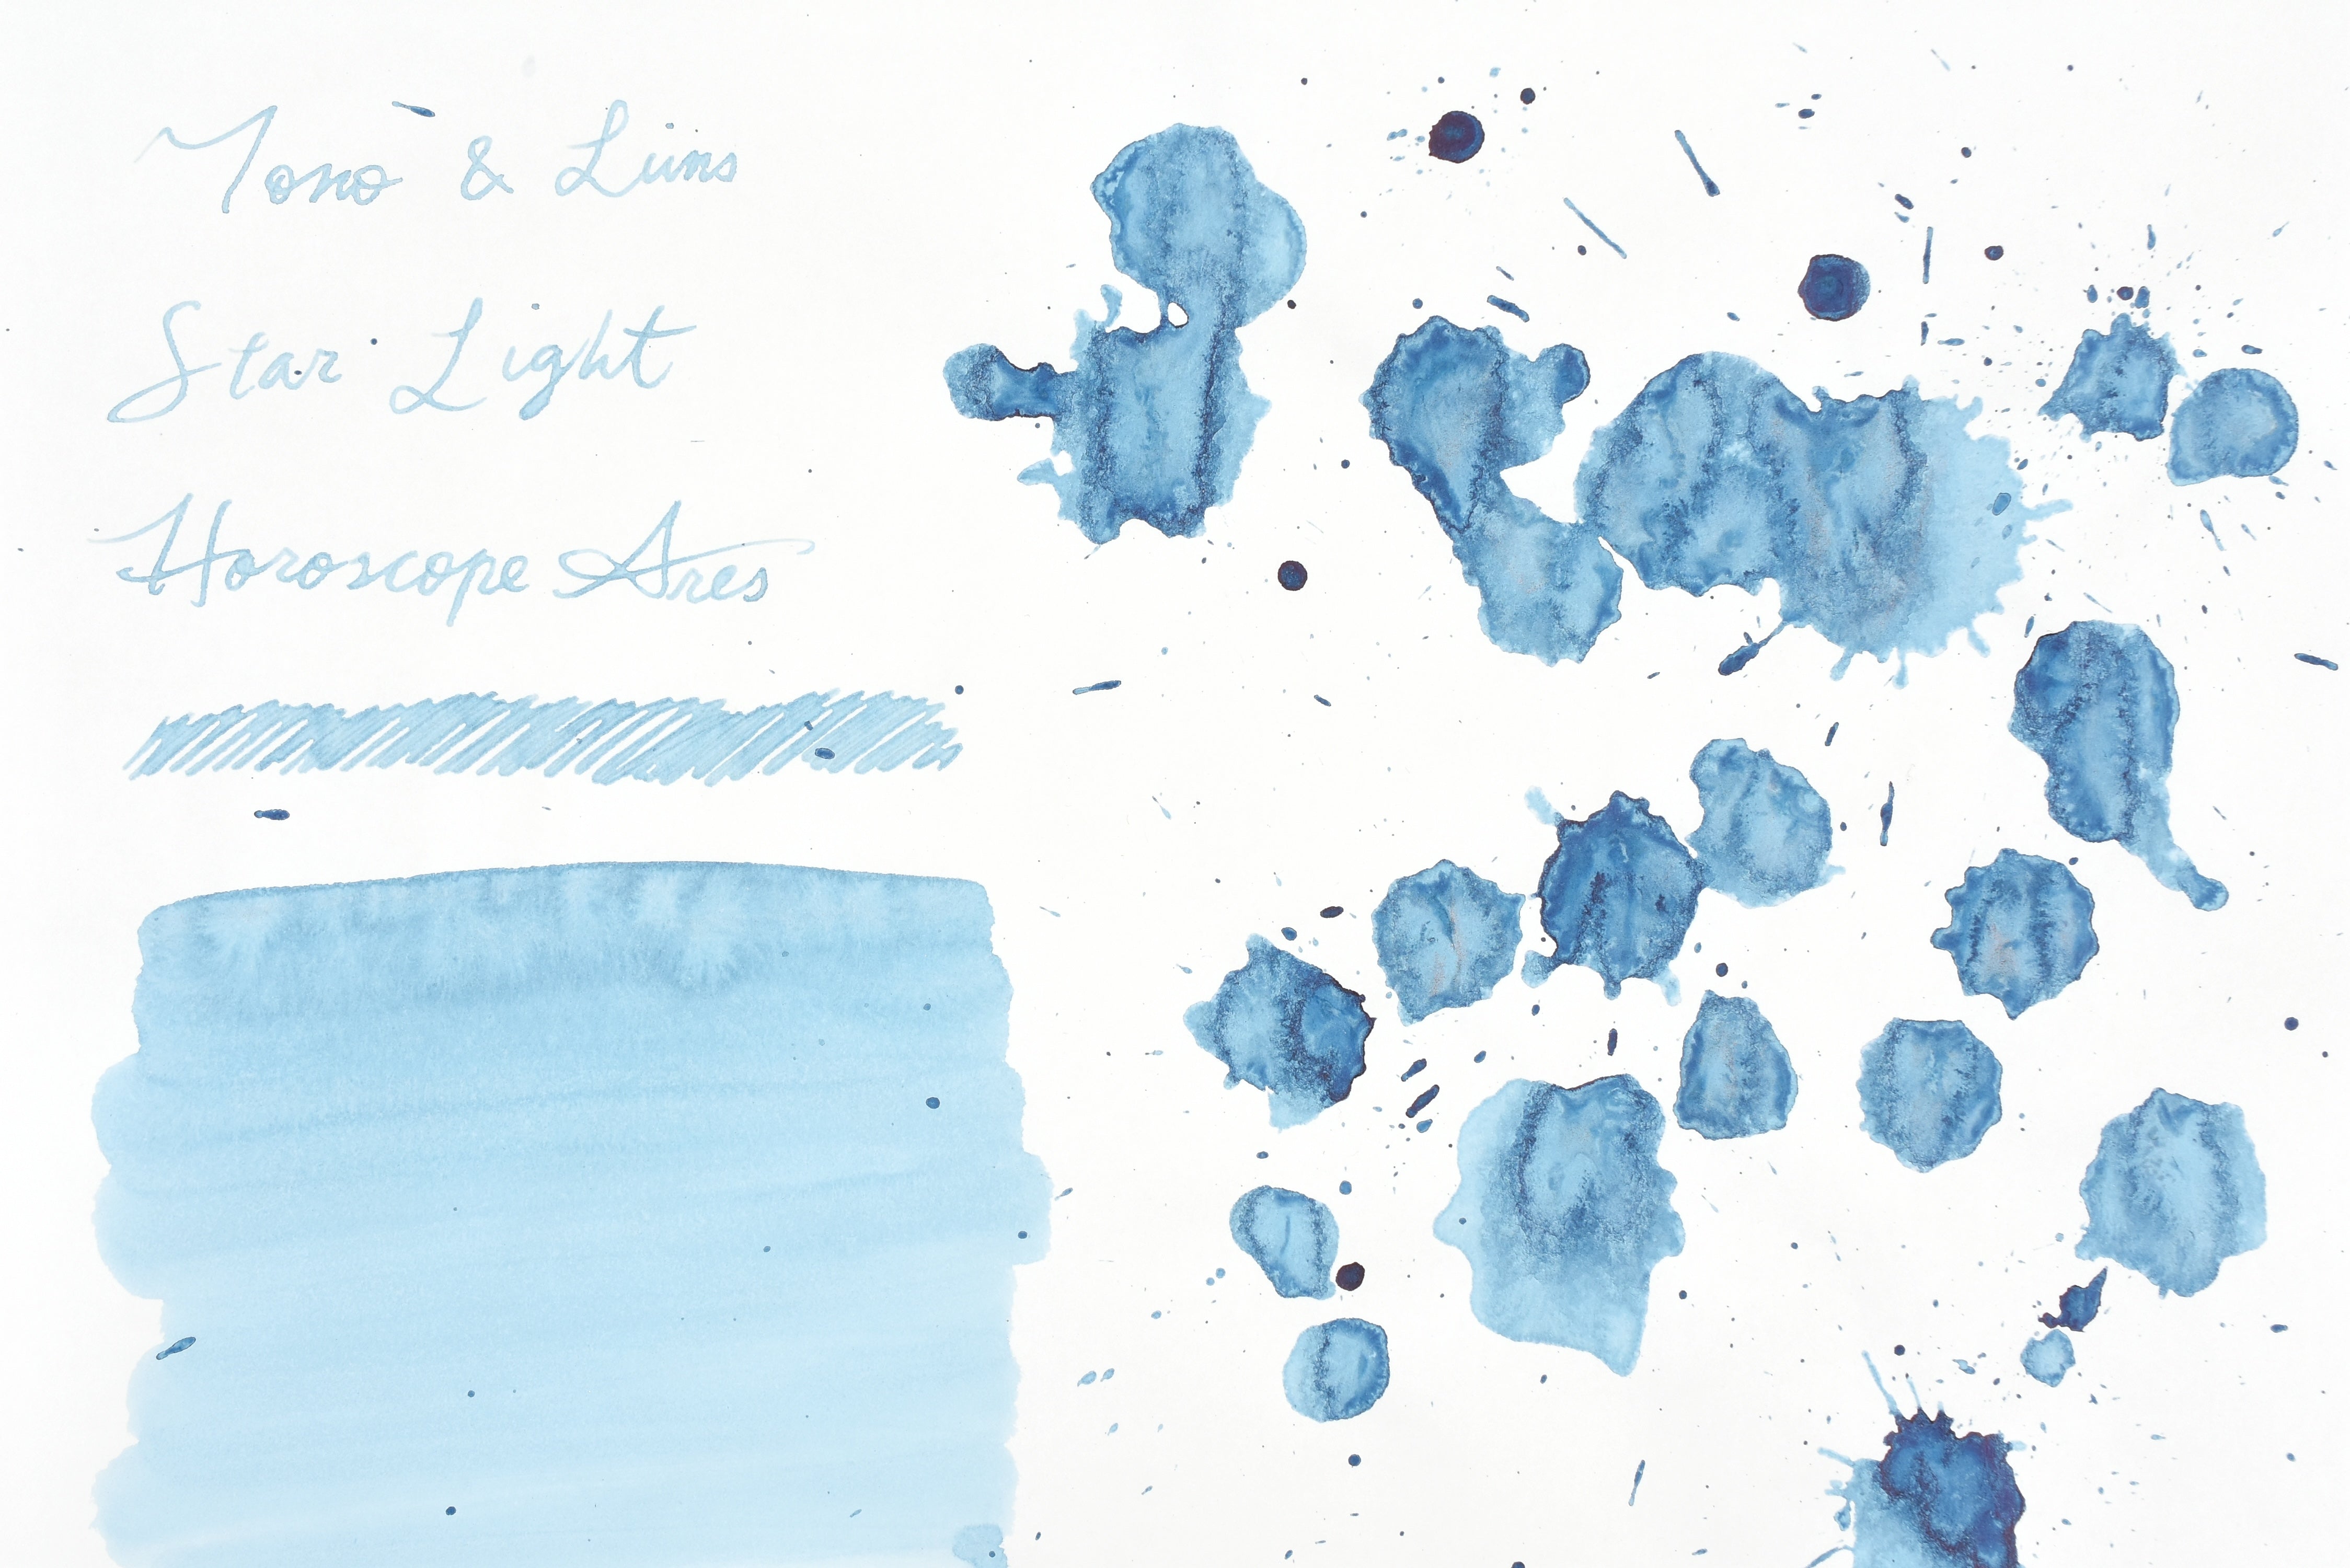 Tono & Lims
Star Light
Horoscope Ares